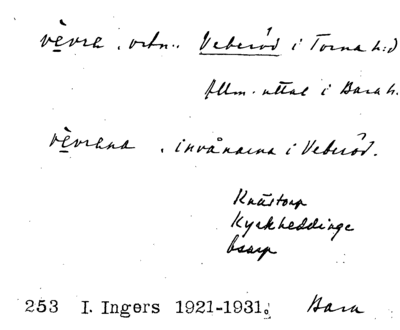 vèvra, ortn. Veberöd i Torna h:d
allm. uttal i Bara h.
vèvrana, invånarna i Veberöd.
Knästorp
Kyrkheddinge
Esarp
253 I. Ingers 1921-1931. Bara